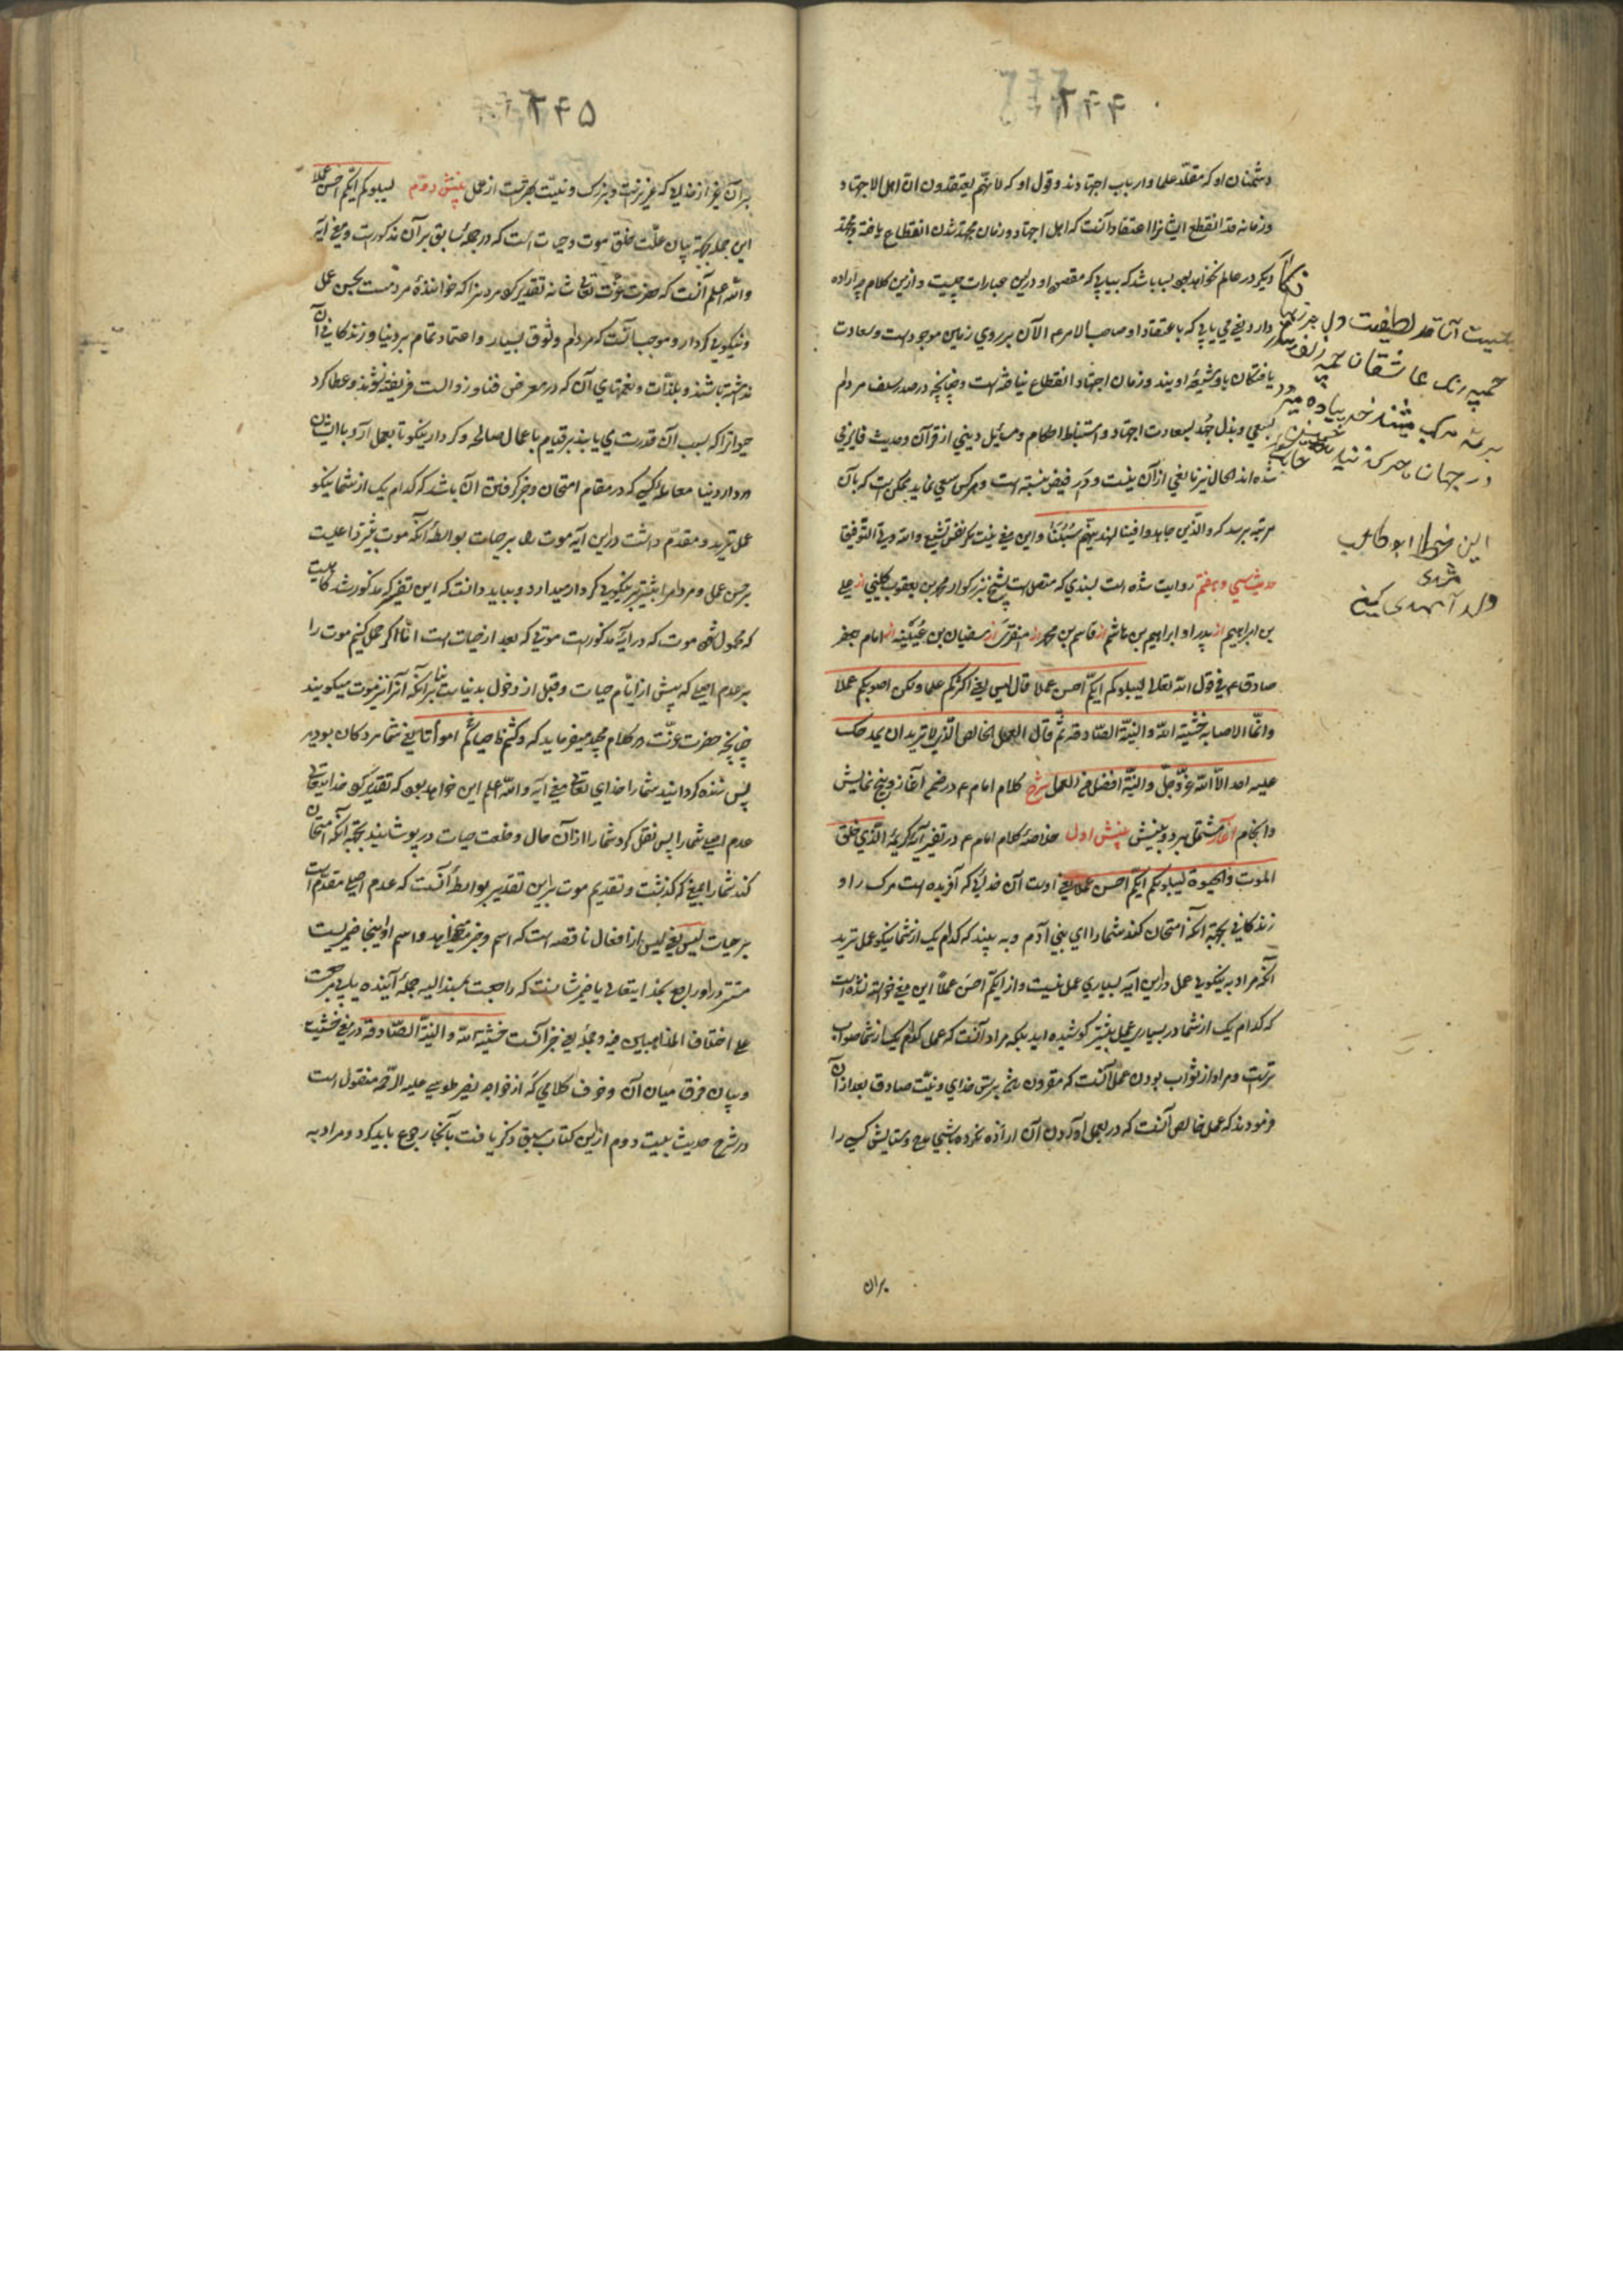 دشمنان او که مقلد علما و ارباب اجتهادند و قول او که لانهم یعتقدون ان اهل الاجتهاد
وزمانه قد انقطع ایشانرا اعتقاد آنست که اهل اجتهاد و زمان مجتهد شدن انقطاع یافته و مجتهد
دیگر در عالم نخواهد بود بسا باشد که بیابی که مقصود او درین عبارات چیست و ازین کلام چه اراده
دارد یعنی می یابی که باعتقاد او صاحب الامر ع الآن بر روی زمین موجودست و سعادت
یافتگان باو شیعهٔ اویند و زمان اجتهاد انقطاع نیافته است و چنانچه در صدر سلف مردم
بسعی و بذل جهد بسعادت اجتهاد و استنباط احکام و مسایل دینی از قرآن و حدیث فایز می
شده اند الحال نیز مانعی از آن نیست و در فیض نبسته است و هر کس سعی نماید ممکن است که بآن
مرتبه برسد که والذین جاهدوا فینا لنهدینهم سبلنا و این معنی نیست مگر نفس تشیع والله ولی التوفیق
حدیث سی و هفتم روایت شده است بسندی که متصل است بشیخ بزرکوار محمد بن یعقوب کلینی از علی
بن ابراهیم از پدر او ابراهیم بن هاشم از قاسم بن محمد از منقری از سفیان بن عیینه از امام جعفر
صادق ع فی قول الله تعالی لیبلوکم ایکم احسن عملا قال لیس یعنی اکثرکم عملا ولکن اصوبکم عملا
وانما الاصابه خشیة الله والنیة الصادقه ثم قال العمل الخالص الذی لا ترید ان یمدحک
علیه احد الا الله عز وجل والنیة افضل من العمل شرح کلام امام ع در ضمن آغاز و پنج نمایش
وانجام آغاز مشتمل بر دو بینش بینش اول خلاصهٔ کلام امام ع در تفسیر آیه کریمه الذی خلق
الموت والحیوة لیبلوکم ایکم احسن عملا یعنی اوست آن خدایی که آفریده است مرک را و
زندکانی بجهة انکه امتحان کند شما را ای بنی آدم و به بیند که کدام یک از شما نیکو عمل ترید
آنکه مراد به نیکویی عمل در این آیه بسیاری عمل نیست و از ایکم احسن عملا این معنی خواسته نشده است
که کدام یک از شما در بسیاری عمل بیشتر کوشیده اید بلکه مراد آنست که عمل کدام یک از شما صواب
ترست و مراد از صواب بودن عمل آنست که مقرون به ترس خدای و نیت صادق بعد از آن
فرمودند که عمل خالص آنست که در بعمل آوردن آن اراده نکرده باشی مدح و ستایش کسی را
بران
این خط ابو طالب
ولد
بر آن غیر از خدایی که عزیزست و بزرک و نیت بهترست از عمل بینش دوم لیبلوکم ایکم احسن عملا
این جمله بجهة بیان علت خلق موت و حیات است که در جملهٔ سابق بر آن مذکورست و معنی آیه
والله اعلم آنست که حضرت عزت تعالی شانه تقدیر کرد مردن را که خوانندهٔ مردمست بحسن عمل
و نیکویی کردار و موجب آنست که مردم وثوق بسیار و اعتماد تمام بر دنیا و زندکانی آن
نداشته باشند و بلذات و نعمتهای آن که در معرض فنا و زوالست فریفته نشوند و عطا کرد
حیوة را که بسبب آن قدرت می یابند بر قیام باعمال صالحه و کردار نیکو تا بعمل آرد با ایشان
در دار دنیا معامله کسی که در مقام امتحان و خبر کرفتن آن باشد که کدام یک از شما نیکو
عمل ترید و مقدم داشت در این آیه موت را بر حیات بواسطهٔ آنکه موت بیشتر داعیست
بر حسن عمل و مردم را بیشتر بر نیکویی کردار میدارد و بباید دانست که این تفسیر که مذکور شد کامیست
که محمول شود موت که در آیه مذکورست موتی که بعد از حیات است اما اگر حمل کنیم موت را
بر عدم اصلی که پیش از ایام حیات و قبل از دخول بدنیاست بنا بر آنکه آنرا نیز موت میکویند
چنانچه حضرت عزت در کلام مجید میفرماید که وکنتم امواتا فاحیاکم یعنی شما مردکان بودید
پس زنده کردانید شما را خدای تعالی معنی آیه والله اعلم این خواهد بود که تقدیر کرد خدایتعالی
عدم اصلی شما را پس نقل کرد شما را از آن حال و خلعت حیات در پوشانید بجهة آنکه امتحان
کند شما را بمعنی که کذشت و تقدیم موت برین تقدیر بواسطهٔ آنست که عدم اصلی مقدم است
بر حیات لیس یعنی لیس از افعال ناقصه است که اسم و خبر میخواهد و اسم او اینجا ضمیریست
مستتر در او راجع بخدایتعالی یا ضمیر شانست که راجعست بمسند الیه جملهٔ آینده
علی اختلاف المذاهبین فیه و جملهٔ یعنی خبر آنست خشیة الله والنیة الصادقه در معنی خشیت
و بیان فرق میان آن و خوف کلامی که از خواجه نصیر طوسی علیه الرحمه منقول است
در شرح حدیث بیست دوم ازین کتاب سبق ذکر یافت بآنجا رجوع باید کرد و مراد به